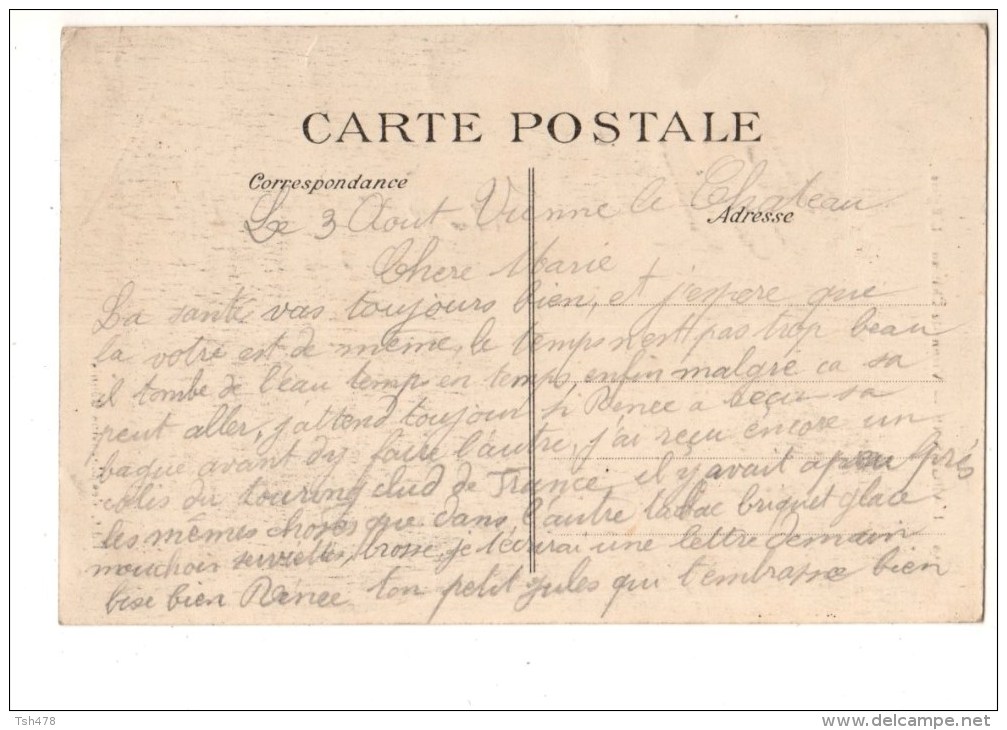 CARTE POSTALE
Correspondance
Adresse
Le 3 Aout Vienne le Chateau
Chere Marie
La santé vas toujours bien, et j'espere que
la votre est de même, le temps n'est pas trop beau
il tombe de l'eau temps en temps, enfin malgré ca sa
peut aller, j'attend toujour si Renée a reçu sa
bague avant dy faire l'autre, j'ai reçu encore un
colis du touring club de France, il y avait a peu prés
les mêmes choses que dans l'autre tabac briquet glace
mouchoir serviette, brosse, je t'écrirai une lettre demain
bise bien Renée ton petit Jules qui t'embrasse bien
Tsh478
www.delcampe.net